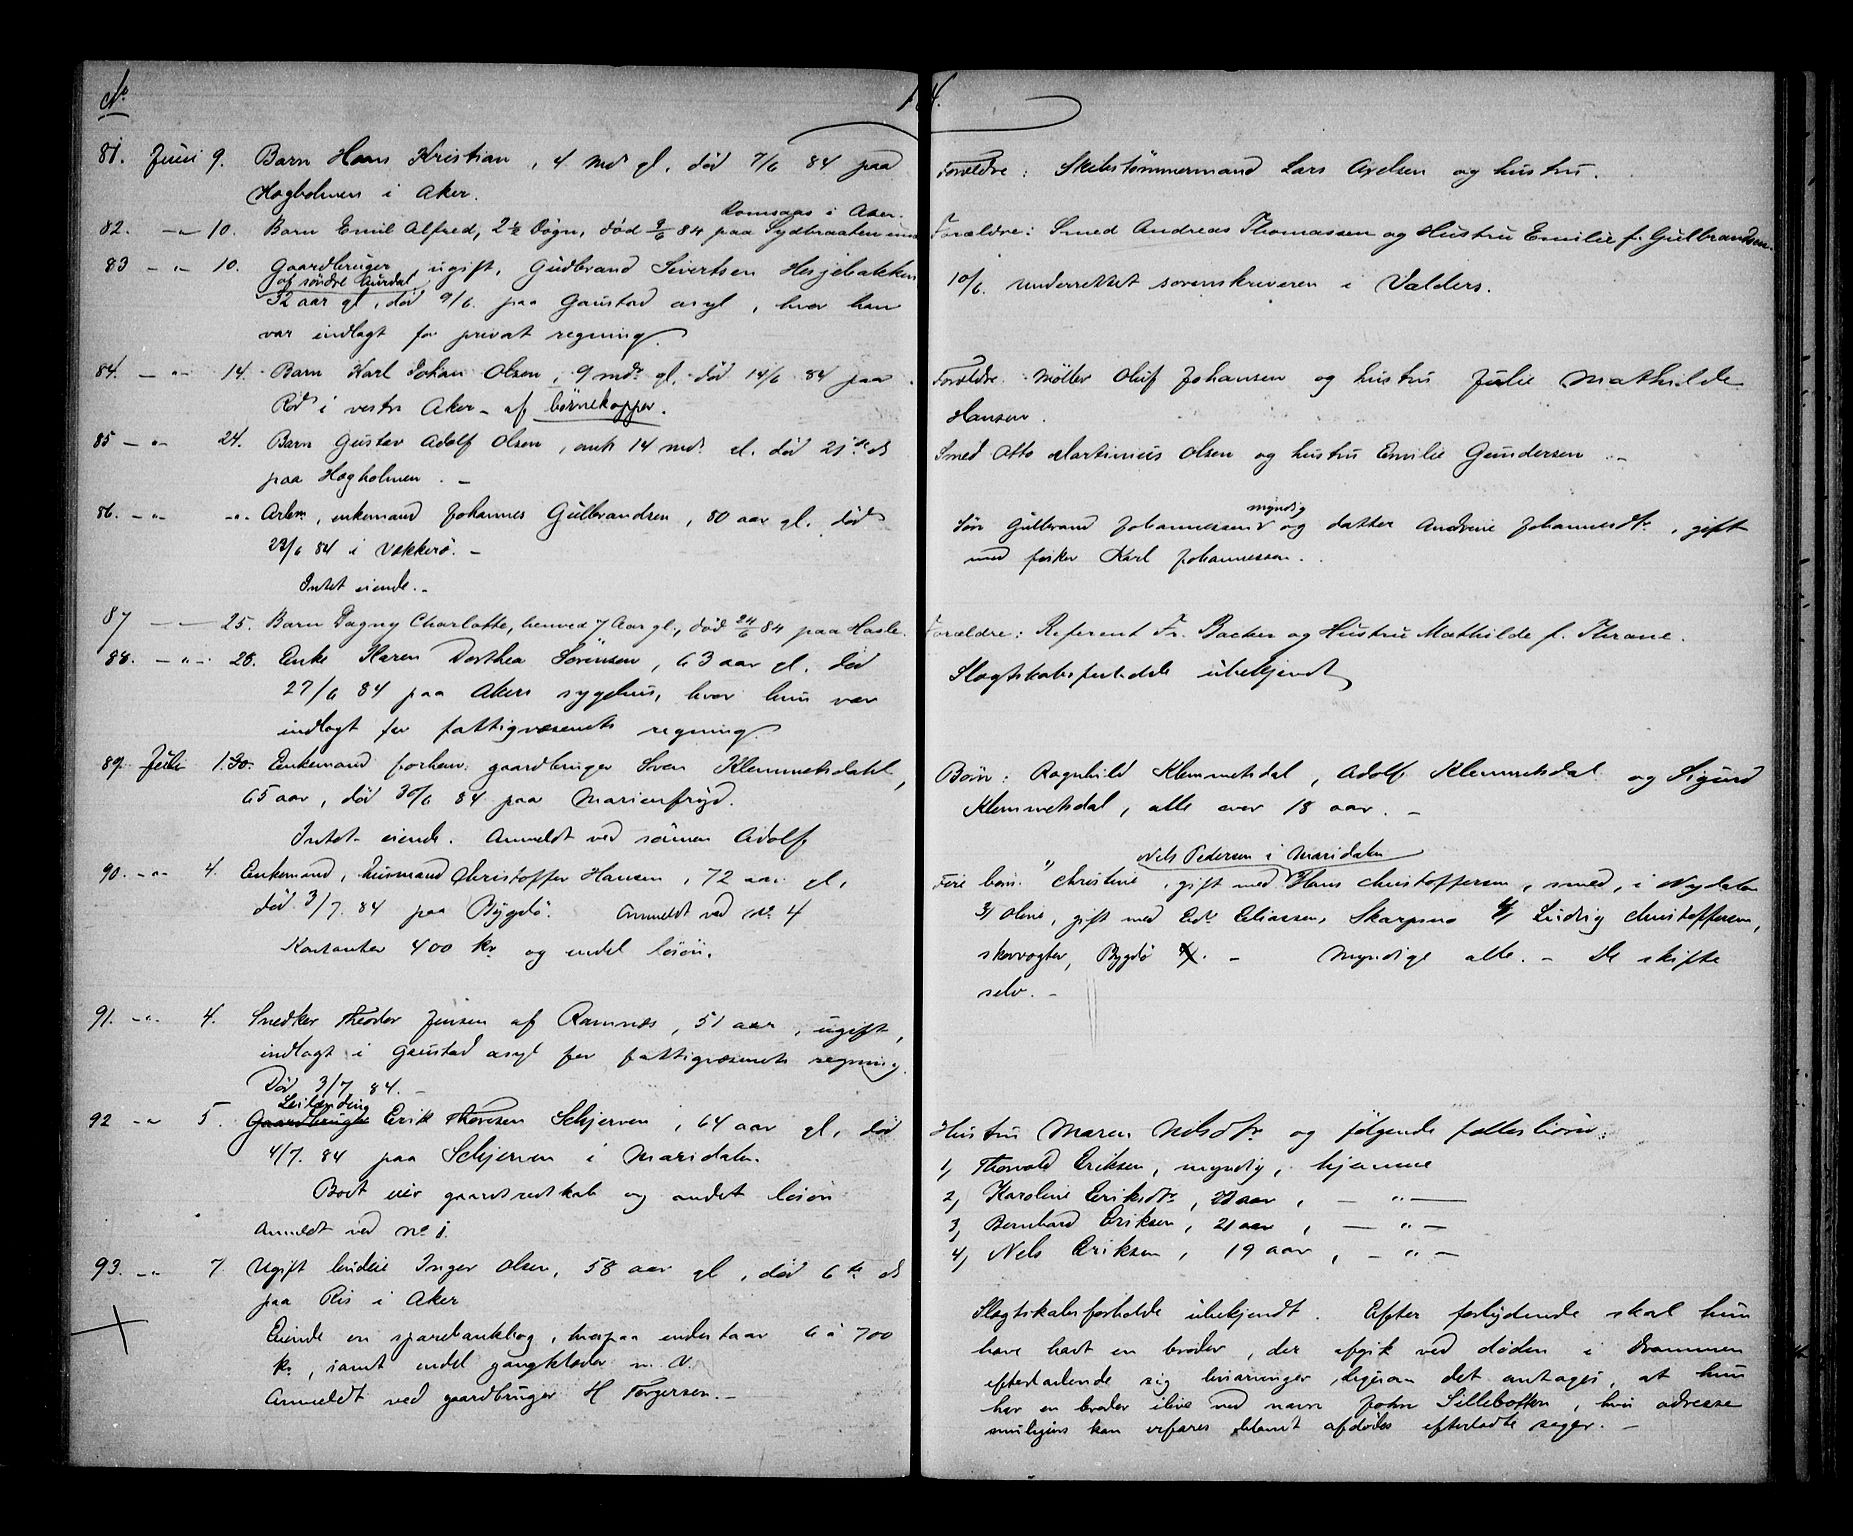 No 14.
81. Juni 9. Barn Hans Kristian, 4 mdr gl, død 7/6 84 paa
Hegholmen i Aker.
Forældre: Skibstømmermand Lars Axelsen og hustru.
Romsaas i Aker.
82. -"- 10. Barn Emil Alfred, 2½ Døgn, død 9/6 84 paa Sydbraaten
Forældre: Smed Andreas Thomassen og Hustru Emilie f. Gulbrandsen.
83 -"- 10. Gaardbruger ugift, Gudbrand Sivertsen Hesjebakken
af søndre Aurdal
32 aar gl, død 9/6. paa Gaustad asyl, hvor han
var indlagt for privat regning.
10/6. underrettet sorenskriveren i Valders.
84. -"- 14. Barn Karl Johan Olsen, 9 mdr gl. død 14/6 84 paa
Rød i vestre Aker - af børnekopper.
Forældre: Møller Oluf Johansen og hustru Julie Mathilde
Hansen.
85 -"- 24. Barn Gustav Adolf Olsen, omtr 14 mdr. gl. død 21de ds
paa Hegholmen. -
Smed Otto Martinius Olsen og hustru Emilie Gundersen. -
86. -"- -"- Arbm, enkemand Johannes Gulbrandsen, 80 aar gl. død
22/6 84 i Vækkerø. -
Intet eiende. -
myndig
Søn Gulbrand Johannessen og datter Andrine Johannesdtr, gift
med fisker Karl Johannessen.
87 - - 25. Barn Dagny Charlotte, henved 7 Aar gl., død 24/6 84 paa Hasle.
Forældre: Referent Fr. Backer og Hustru Mathilde f. Thrane.
88. -"- 28. Enke Karen Dorthea Sørensen, 63 aar gl. død
27/6 84 paa Akers sygehus, hvor hun var
indlagt for fattigvæsenets regning
Slægtskabsforholde ubekjendt
89 Juli 1. Enkemand forhenv. gaardbruger Sven Klemmetsdahl,
65 aar, død 30/6 84 paa Marienfryd.
Intet eiende. Anmeldt ved sønnen Adolf
Børn: Ragnhild Klemmetsdal, Adolf Klemmetsdal og Sigurd
Klemmetsdal, alle over 18 aar. -
90. -"- 4. Enkemand, husmand Christoffer Hansen, 72 aar gl,
død 3/7. 84 paa Bygdø. Anmeldt ved No 4
Kontanter 400 kr og endel løsøre.
Nels Pedersen i Maridalen
Fire børn: Christine, gift med Hans Christoffersen, smed, i Nydalen
3/ Oline, gift med Edv. Eliassen, Skarpsno 4/ Ludvig Christoffersen,
skovvogter, Bygdø. - Myndige alle. - De skifte
selv. -
91. -"- 4. Snedker Theodor Jensen af Ramnæs, 51 aar, ugift,
indlagt i Gaustad asyl for fattigvæsenets regning.
Død 3/7 84. -
Leilænding
92 -"- 5. Gaardbruger Erik Thoresen Schjerven, 64 aar gl, død
4/7. 84 paa Schjerven i Maridalen.
Boet eier gaardsredskab og andet løsøre
Anmeldt ved No 1.
Hustru Maren Nelsdtr og følgende fællesbørn:
1, Thorvald Eriksen, myndig, hjemme
2, Karoline Eriksdtr, 22 aar, - " -
3, Bernhard Eriksen, 21 aar, - " -
4, Nels Eriksen, 19 aar, - " -
93. -"- 7. Ugift budeie Inger Olsen, 58 aar gl, død 6te ds
paa Ris i Aker
Eiende en sparebankbog, hvorpaa indestaar 6 à 700
kr, samt endel gangklæder m. v.
Anmeldt ved gaardbruger H Torgersen. -
Slægtskabsforholde ubekjendt. Efter forlydende skal hun
have havt en broder, der afgik ved døden i Drammen
efterladende sig livsarvinger. Ligesaa det antages, at hun
har en broder ilive ved navn John Sillebotten, hvis adresse
muligens kan erfares blandt afdødes efterladte sager. -